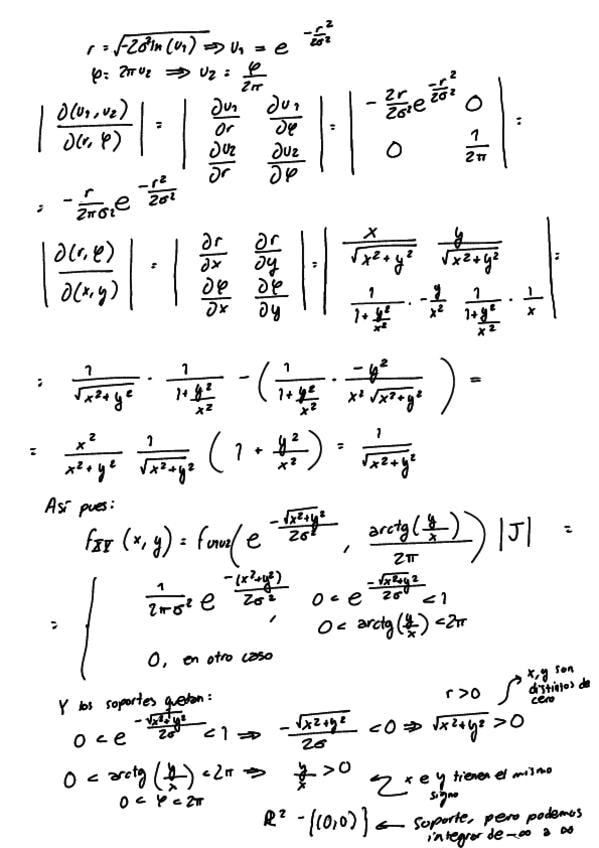 r = √(-2σ² ln(u₁)) ⇒ u₁ = e^(-r²/2σ²)
φ = 2πu₂ ⇒ u₂ = φ/2π
|∂(u₁,u₂)/∂(r,φ)| = |∂u₁/∂r ∂u₁/∂φ; ∂u₂/∂r ∂u₂/∂φ| = |-2r/2σ² e^(-r²/2σ²) 0; 0 1/2π| =
= -r/2πσ² e^(-r²/2σ²)
|∂(r,φ)/∂(x,y)| = |∂r/∂x ∂r/∂y; ∂φ/∂x ∂φ/∂y| = |x/√(x²+y²) y/√(x²+y²); 1/(1+y²/x²) · -y/x² 1/(1+y²/x²) · 1/x| =
= 1/√(x²+y²) · 1/(1+y²/x²) - (1/(1+y²/x²) · -y²/(x²√(x²+y²))) =
= x²/(x²+y²) 1/√(x²+y²) (1 + y²/x²) = 1/√(x²+y²)
Así pues:
f_XY (x,y) = f_U1U2(e^(-√(x²+y²)/2σ²), arctg(y/x)/2π) |J| =
= { 1/2πσ² e^(-(x²+y²)/2σ²), 0 < e^(-√(x²+y²)/2σ) < 1
0 < arctg(y/x) < 2π
0, en otro caso
Y los soportes quedan:
0 < e^(-√(x²+y²)/2σ) < 1 ⇒ -√(x²+y²)/2σ < 0 ⇒ √(x²+y²) > 0
r > 0
x,y son
distintos de
cero
0 < arctg(y/x) < 2π ⇒ y/x > 0
x e y tienen el mismo
signo
0 < φ < 2π
ℝ² - {(0,0)} ← soporte, pero podemos
integrar de -∞ a ∞